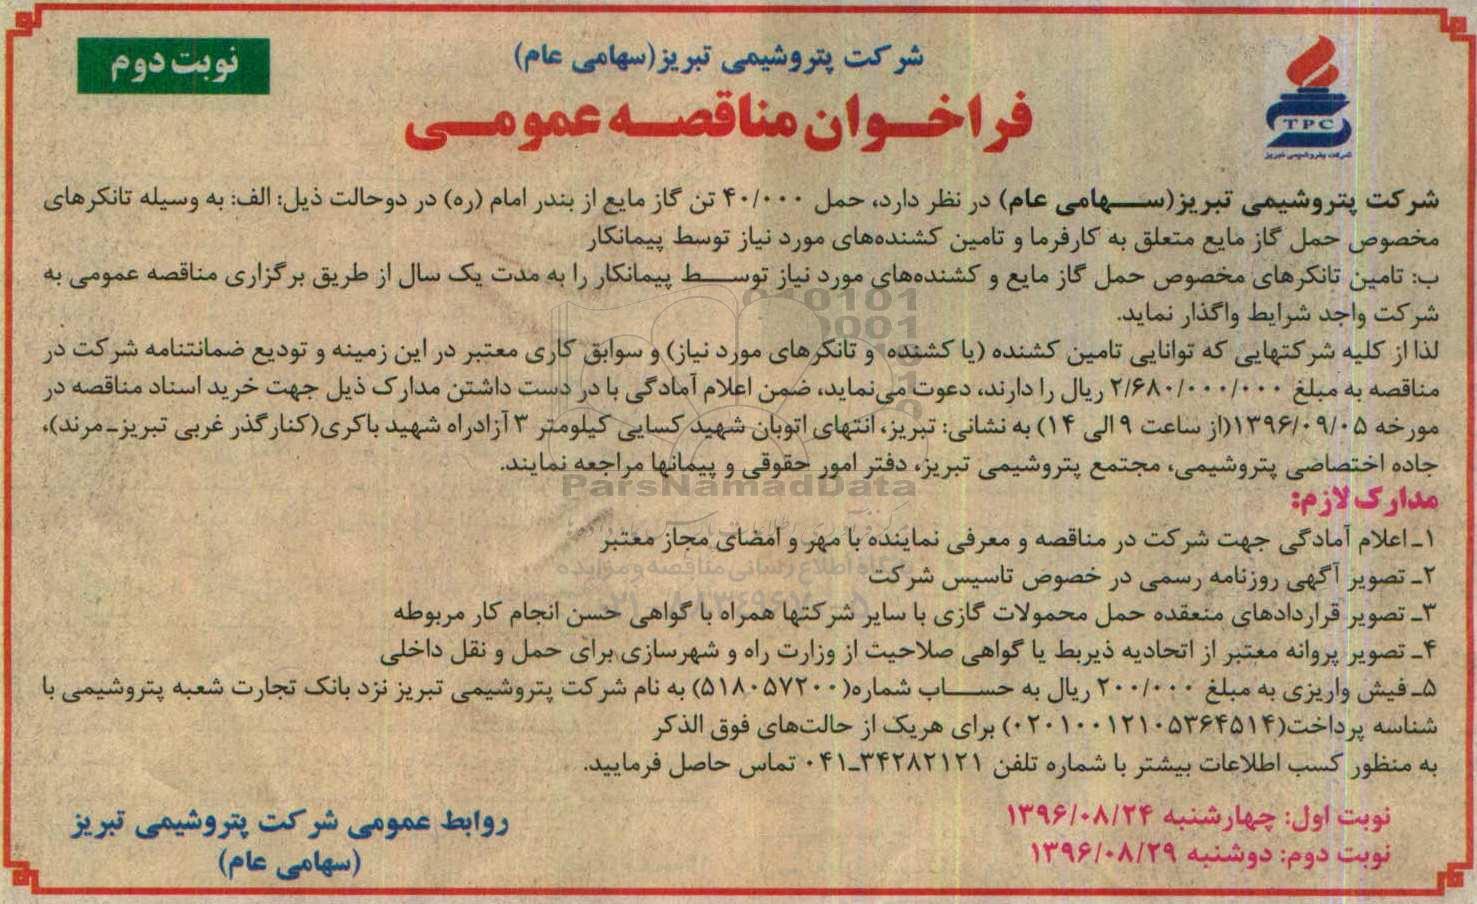 نوبت دوم
شرکت پتروشیمی تبریز(سهامی عام)
فراخوان مناقصه عمومی
TPC
شرکت پتروشیمی تبریز
شرکت پتروشیمی تبریز(سهامی عام) در نظر دارد، حمل ۴۰/۰۰۰ تن گاز مایع از بندر امام (ره) در دوحالت ذیل: الف: به وسیله تانکرهای
مخصوص حمل گاز مایع متعلق به کارفرما و تامین کشنده‌های مورد نیاز توسط پیمانکار
ب: تامین تانکرهای مخصوص حمل گاز مایع و کشنده‌های مورد نیاز توسط پیمانکار را به مدت یک سال از طریق برگزاری مناقصه عمومی به
شرکت واجد شرایط واگذار نماید.
لذا از کلیه شرکتهایی که توانایی تامین کشنده (یا کشنده و تانکرهای مورد نیاز) و سوابق کاری معتبر در این زمینه و تودیع ضمانتنامه شرکت در
مناقصه به مبلغ ۲/۶۸۰/۰۰۰/۰۰۰ ریال را دارند، دعوت می‌نماید، ضمن اعلام آمادگی با در دست داشتن مدارک ذیل جهت خرید اسناد مناقصه در
مورخه ۱۳۹۶/۰۹/۰۵(از ساعت ۹ الی ۱۴) به نشانی: تبریز، انتهای اتوبان شهید کسایی کیلومتر ۳ آزادراه شهید باکری(کنارگذر غربی تبریز-مرند)،
جاده اختصاصی پتروشیمی، مجتمع پتروشیمی تبریز، دفتر امور حقوقی و پیمانها مراجعه نمایند.
مدارک لازم:
۱- اعلام آمادگی جهت شرکت در مناقصه و معرفی نماینده با مهر و امضای مجاز معتبر
۲- تصویر آگهی روزنامه رسمی در خصوص تاسیس شرکت
۳- تصویر قراردادهای منعقده حمل محمولات گازی با سایر شرکتها همراه با گواهی حسن انجام کار مربوطه
۴- تصویر پروانه معتبر از اتحادیه ذیربط یا گواهی صلاحیت از وزارت راه و شهرسازی برای حمل و نقل داخلی
۵- فیش واریزی به مبلغ ۲۰۰/۰۰۰ ریال به حساب شماره(۵۱۸۰۵۷۲۰۰) به نام شرکت پتروشیمی تبریز نزد بانک تجارت شعبه پتروشیمی با
شناسه پرداخت(۰۲۰۱۰۰۱۲۱۰۵۳۶۴۵۱۴) برای هریک از حالت‌های فوق الذکر
به منظور کسب اطلاعات بیشتر با شماره تلفن ۳۴۲۸۲۱۲۱-۰۴۱ تماس حاصل فرمایید.
نوبت اول: چهارشنبه ۱۳۹۶/۰۸/۲۴
نوبت دوم: دوشنبه ۱۳۹۶/۰۸/۲۹
روابط عمومی شرکت پتروشیمی تبریز
(سهامی عام)
ParsNamadData
پایگاه اطلاع رسانی مناقصه و مزایده